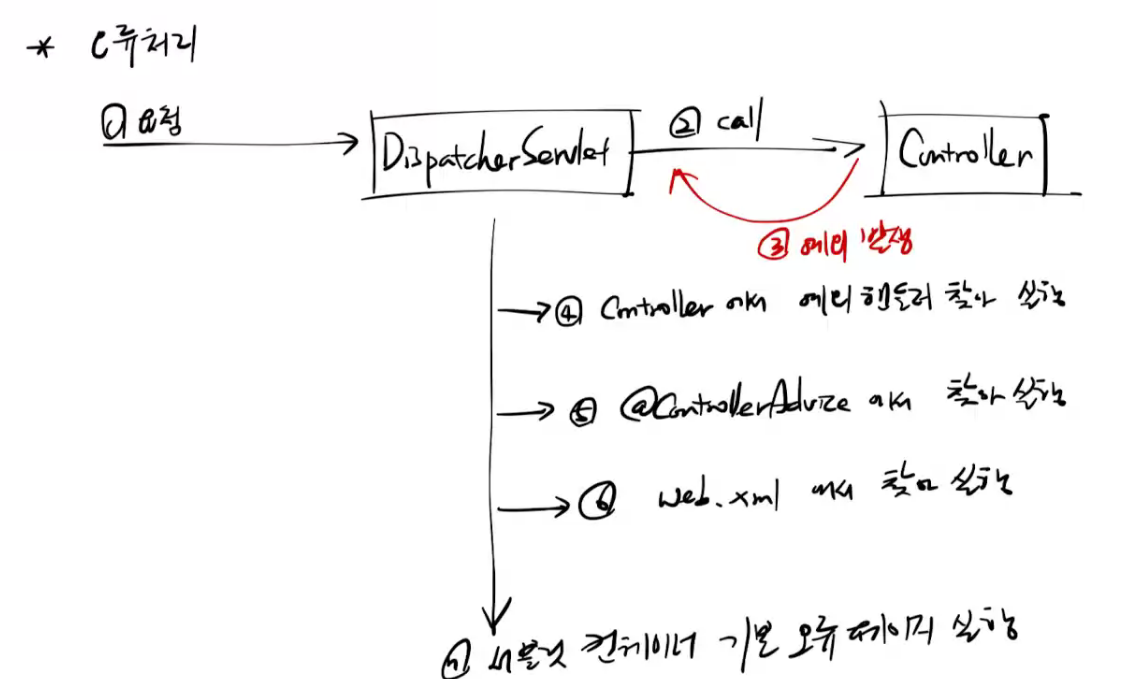 * 오류처리
① 요청
DispatcherServlet
② call
Controller
③ 예외 발생
④ Controller 에서 예외 핸들러 찾아 실행
⑤ @ControllerAdvice 에서 찾아 실행
⑥ web.xml 에서 찾아 실행
⑦ 서블릿 컨테이너 기본 오류 페이지 실행